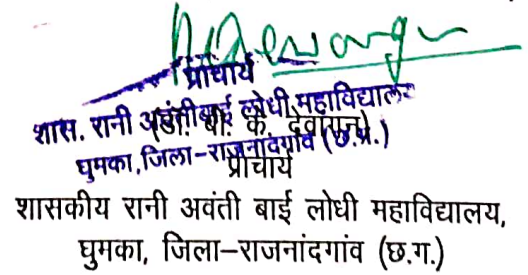 प्राचार्य
शास. रानी अवंतीबाई लोधी महाविद्यालय
(डॉ. बी. के. देवांगन)
घुमका, जिला-राजनांदगांव (छ.ग.)
प्राचार्य
शासकीय रानी अवंती बाई लोधी महाविद्यालय,
घुमका, जिला–राजनांदगांव (छ.ग.)